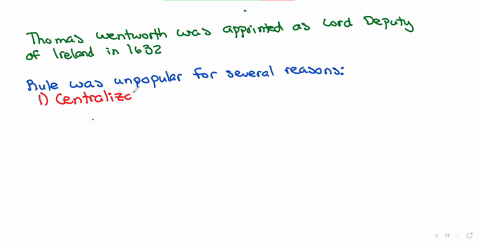 Thomas wentworth was apprinted as Lord Deputy
of Ireland in 1632
Rule was unpopular for several reasons:
1) Centralizc